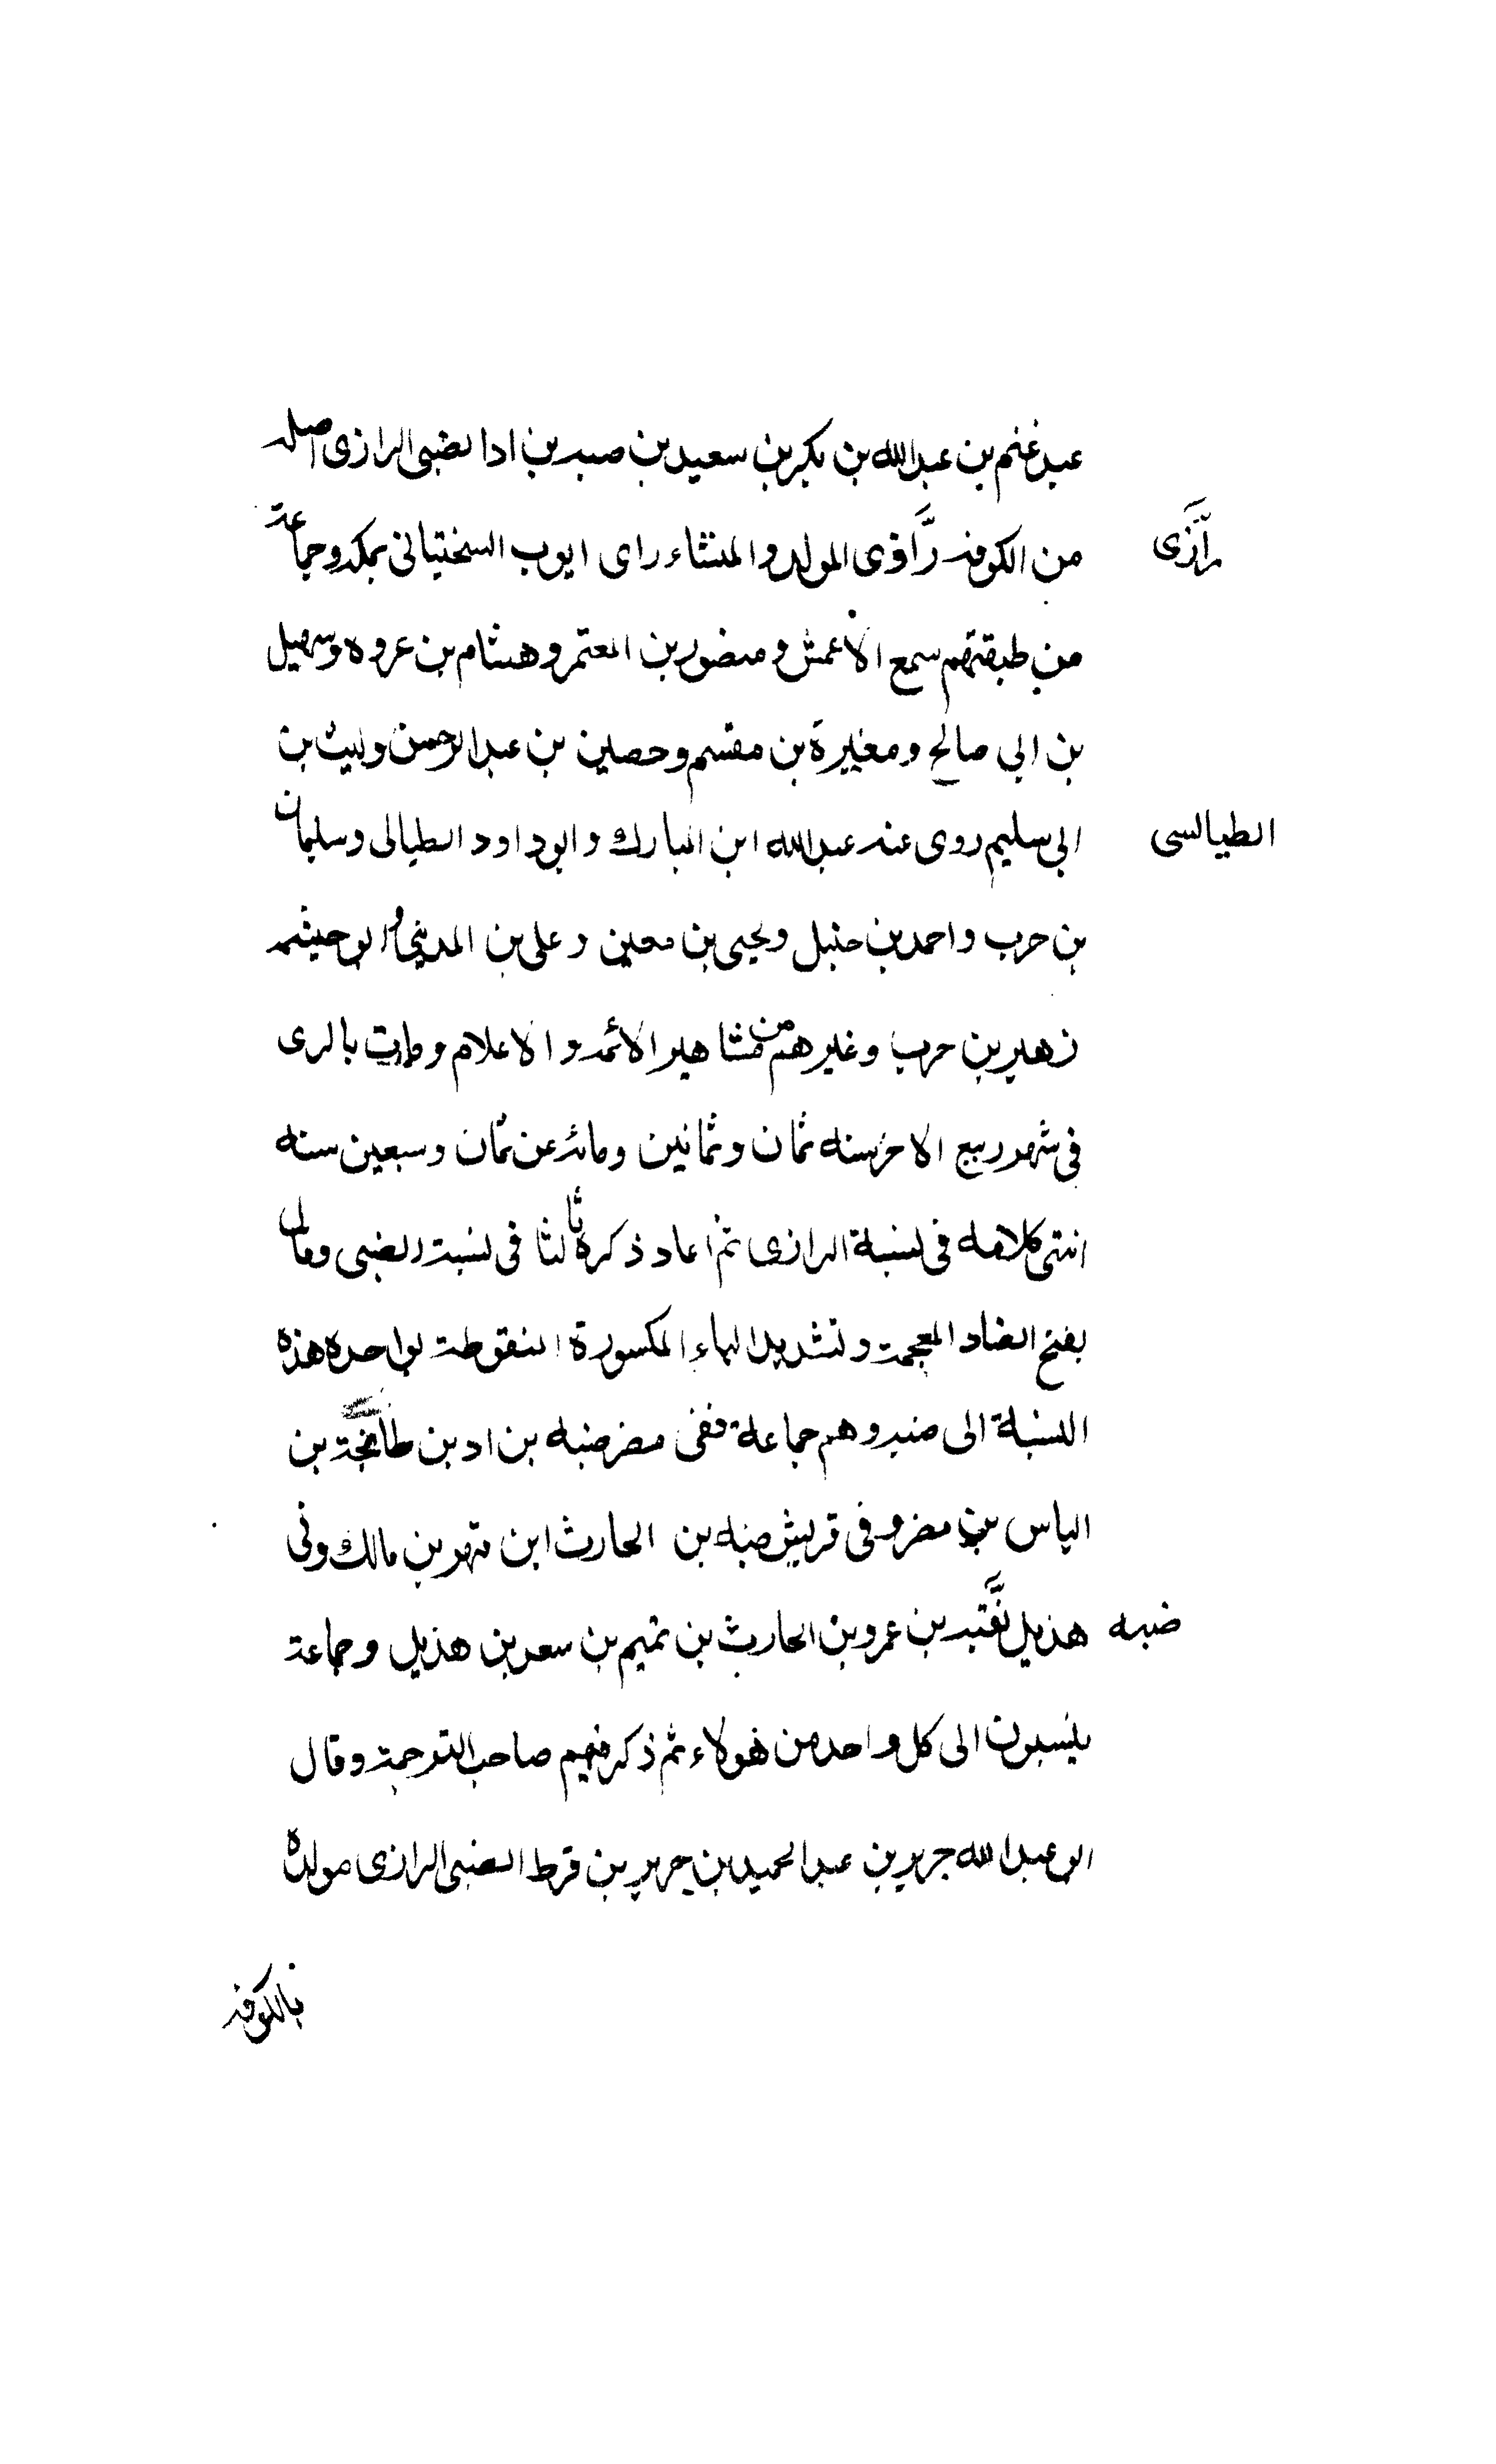 عبد غنم بن عبد الله بن بكر بن سعيد بن صبه بن اد الضبى الرازى اصله
من الكوفه راوى المولد والمنشاء راى ايوب السختيانى بمكه وجماعة
رازى
من طبقتهم سمع الاعمش و منصور بن المعتمر وهشام بن عروه وسهيل
بن ابى صالح ومغيرة بن مقسم وحصين بن عبد الرحمن وليث بن
ابى سليم روى عنه عبد الله ابن المبارك وابو داود الطيالى وسليمان
الطيالسى
بن حرب واحمد بن حنبل ويحيى بن معين وعلى بن المدينى وابو خيثمه
زهير بن حرب وغيرهم من مشاهير الائمه والاعلام ومات بالرى
فى شهور ربيع الاخر سنه ثمان وثمانين ومائه عن ثمان وسبعين سنه
انتهى كلامه فى نسبة الرازى ثم اعاد ذكره ثالثا فى نسبة الضبى وقال
بفتح الضاد المعجمة وتشديد الباء المكسورة المنقوطة بواحده هذه
النسبة الى ضبه وهم جماعة ففى مضر ضبه بن اد بن طابخة بن
الياس بن مضر وفى قريش ضبه بن الحارث ابن فهر بن مالك وفى
هذيل بن عمرو بن الحارث بن تميم بن سعد بن هذيل وجماعة
ضبه
ينسبون الى كل واحد من هولاء ثم ذكر فيهم صاحب الترجمة وقال
ابو عبد الله جرير بن عبد الحميد بن جرير بن قرط الضبى الرازى مولده
بالكوفه